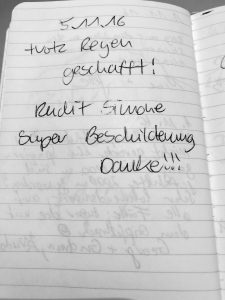 5.11.16
trotz Regen
geschafft!
Rudi + Simone
Super Beschilderung
Danke!!!